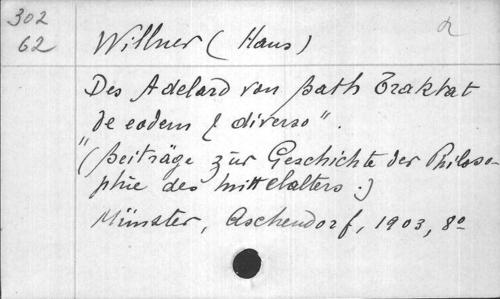 302
62
Willner (Hans)
Des Adelard von Bath Traktat
"de eodem & diverso".
(Beiträge zur Geschichte der Philoso-
phie des Mittelalters.)
Münster, Aschendorf, 1903, 8o